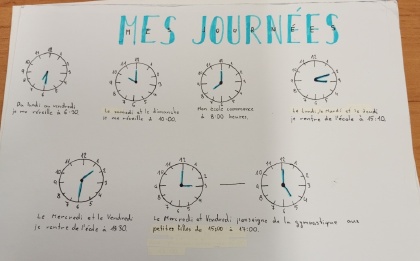 MES JOURNÉES
Du lundi au vendredi
je me réveille à 6:30.
Le samedi et le dimanche
je me réveille à 10:00.
Mon école commence
à 8:00 heures.
Le Lundi, le Mardi et le Jeudi
je rentre de l'école à 15:10.
Le Mercredi et le Vendredi
je rentre de l'école à 13:30.
Le Mercredi et Vendredi j'enseigne de la gymnastique aux
petites filles de 15:00 à 17:00.